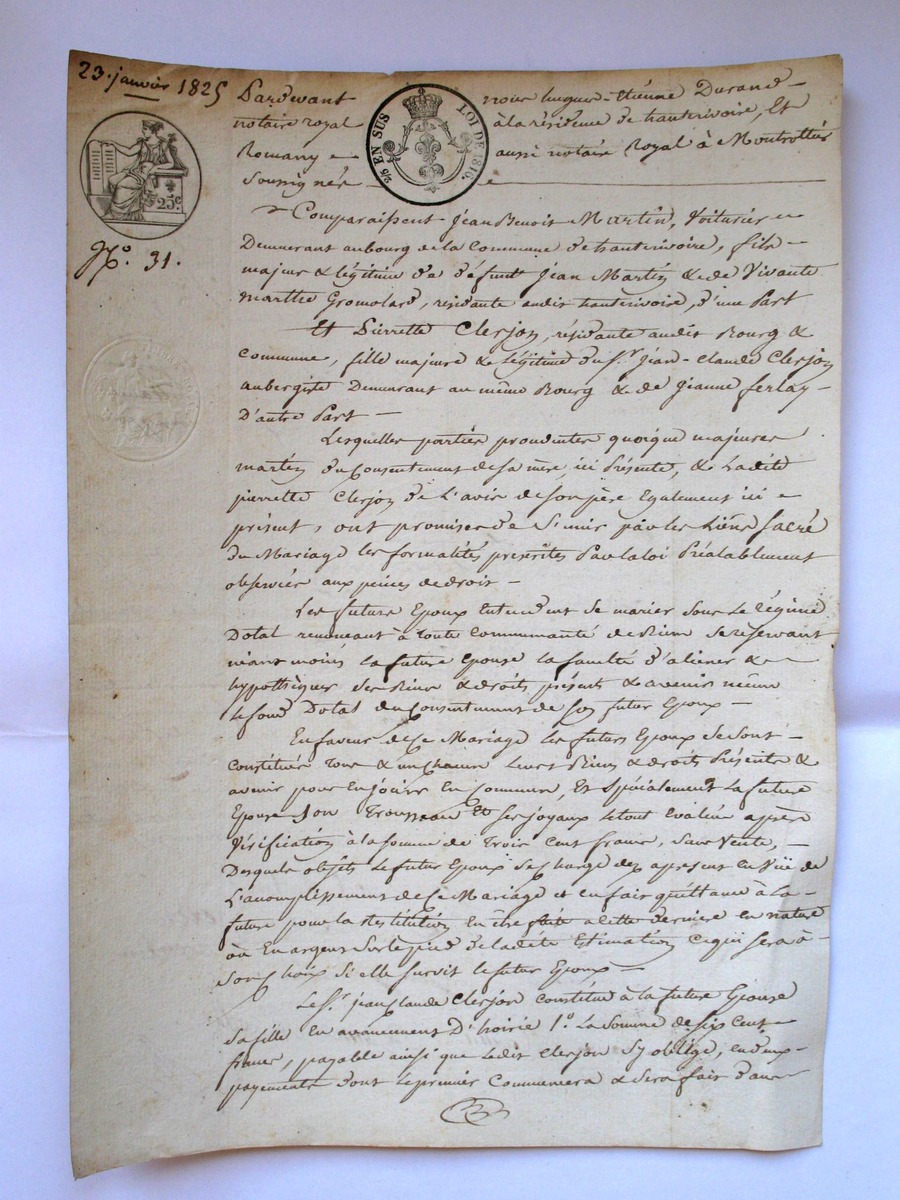 23. janvier 1825
Pardevant nous hugues-Etienne Durand
notaire royal à la résidence de hauterivoire, Et
Romany aussi notaire Royal à Montrottier
Soussignés
2/5 EN SUS LOI DE 1816.
25c
N.o 31.
Comparaissent Jean Benoit Martin, Voiturier
Demeurant au bourg de la Commune de hauterivoire, fils
majeur & légitime de défunt Jean Martin & de Vivante
marthe Gromolard, résidante audit hauterivoire, d'une Part
Et Pierrette Clerjon, résidante audit Bourg &
Commune, fille majeure & légitime du Sr. Jean-Claude Clerjon
aubergiste Demeurant au même Bourg & de Jeanne ferlay
D'autre Part
Lesquelles parties procedantes quoique majeures
martin du Consentement de sa mère, ici Présente, & Ladite
pierrette Clerjon de L'avis de son père Egalement ici
présent, ont promises de S'unir par les Liens Sacré
du Mariage les formalités prescrites Par la loi Préalablement
observées aux peines de droit
Les future Epoux Entendent se marier sous le Régime
Dotal renonceant à toute Communauté de Biens se réservant
néant moins la future Epouse la faculté d'aliener &
hypothéquer ses Biens & droits présents & avenir même
le fond Dotal du Consentement de son futur Epoux
En faveur de Ce Mariage les futurs Epoux Se Sont
Constitués Tous & un chacun Leurs Biens & droits Présents &
avenir pour En jouir En Commun, Et Spécialement La future
Epouse Son Trousseau Et ses joyaux le tout évalué après
Vérification à la somme de Trois Cent francs, Sans Vente,
Desquels objets Le futur Epoux Se charge dez apresent En Vüe de
L'accomplissement de Ce Mariage et en fait quittance à La
future pour la restitution En être faite a cette derniere en nature
où En argent Sur le pied de ladite Estimation Ce qui sera à
Son Choix Si elle Survit le futur Epoux
Le Sr. jean Claude Clerjon Constitue à la future Epouse
Sa fille En avancement D'hoirie 1.o La Somme de Six Cent
francs, payable ainsi que Ledit Clerjon S'y oblige, en deux
payements dont le premier Commencera & sera fait d'au